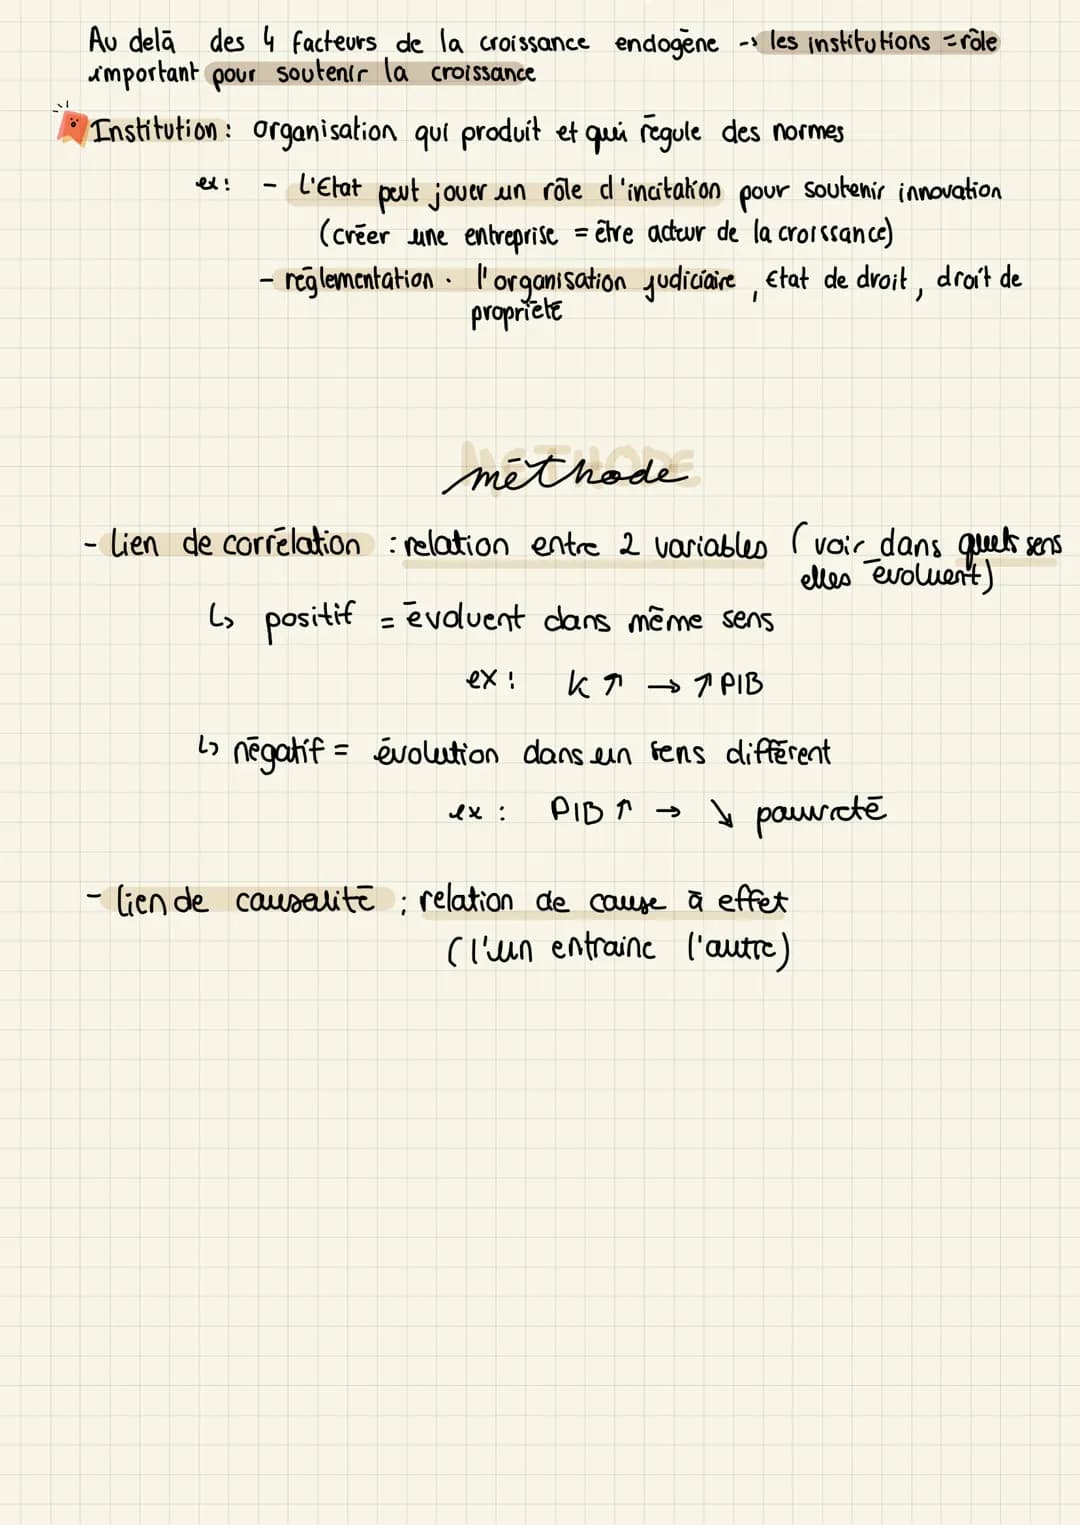 Au delā des 4 facteurs de la croissance endogēne -> les institutions = rôle
important pour soutenir la croissance
Institution : organisation qui produit et qui rēgule des normes
ex : - L'Etat peut jouer un rôle d'incitation pour soutenir innovation
(crēer une entreprise = être acteur de la croissance)
- rēglementation . l'organisation judiciaire, Etat de droit, droit de
propriētē
METHODE
mēthode
- Lien de corrēlation : relation entre 2 variables (voir dans quels sens
elles ēvoluent)
↳ positif = ēvoluent dans même sens
ex : K ↗ → ↗ PIB
↳ nēgatif = évolution dans un sens diffērent
ex : PIB ↑ → ↘ pauvretē
- lien de causalitē ; relation de cause ā effet
(l'un entraine l'autre)